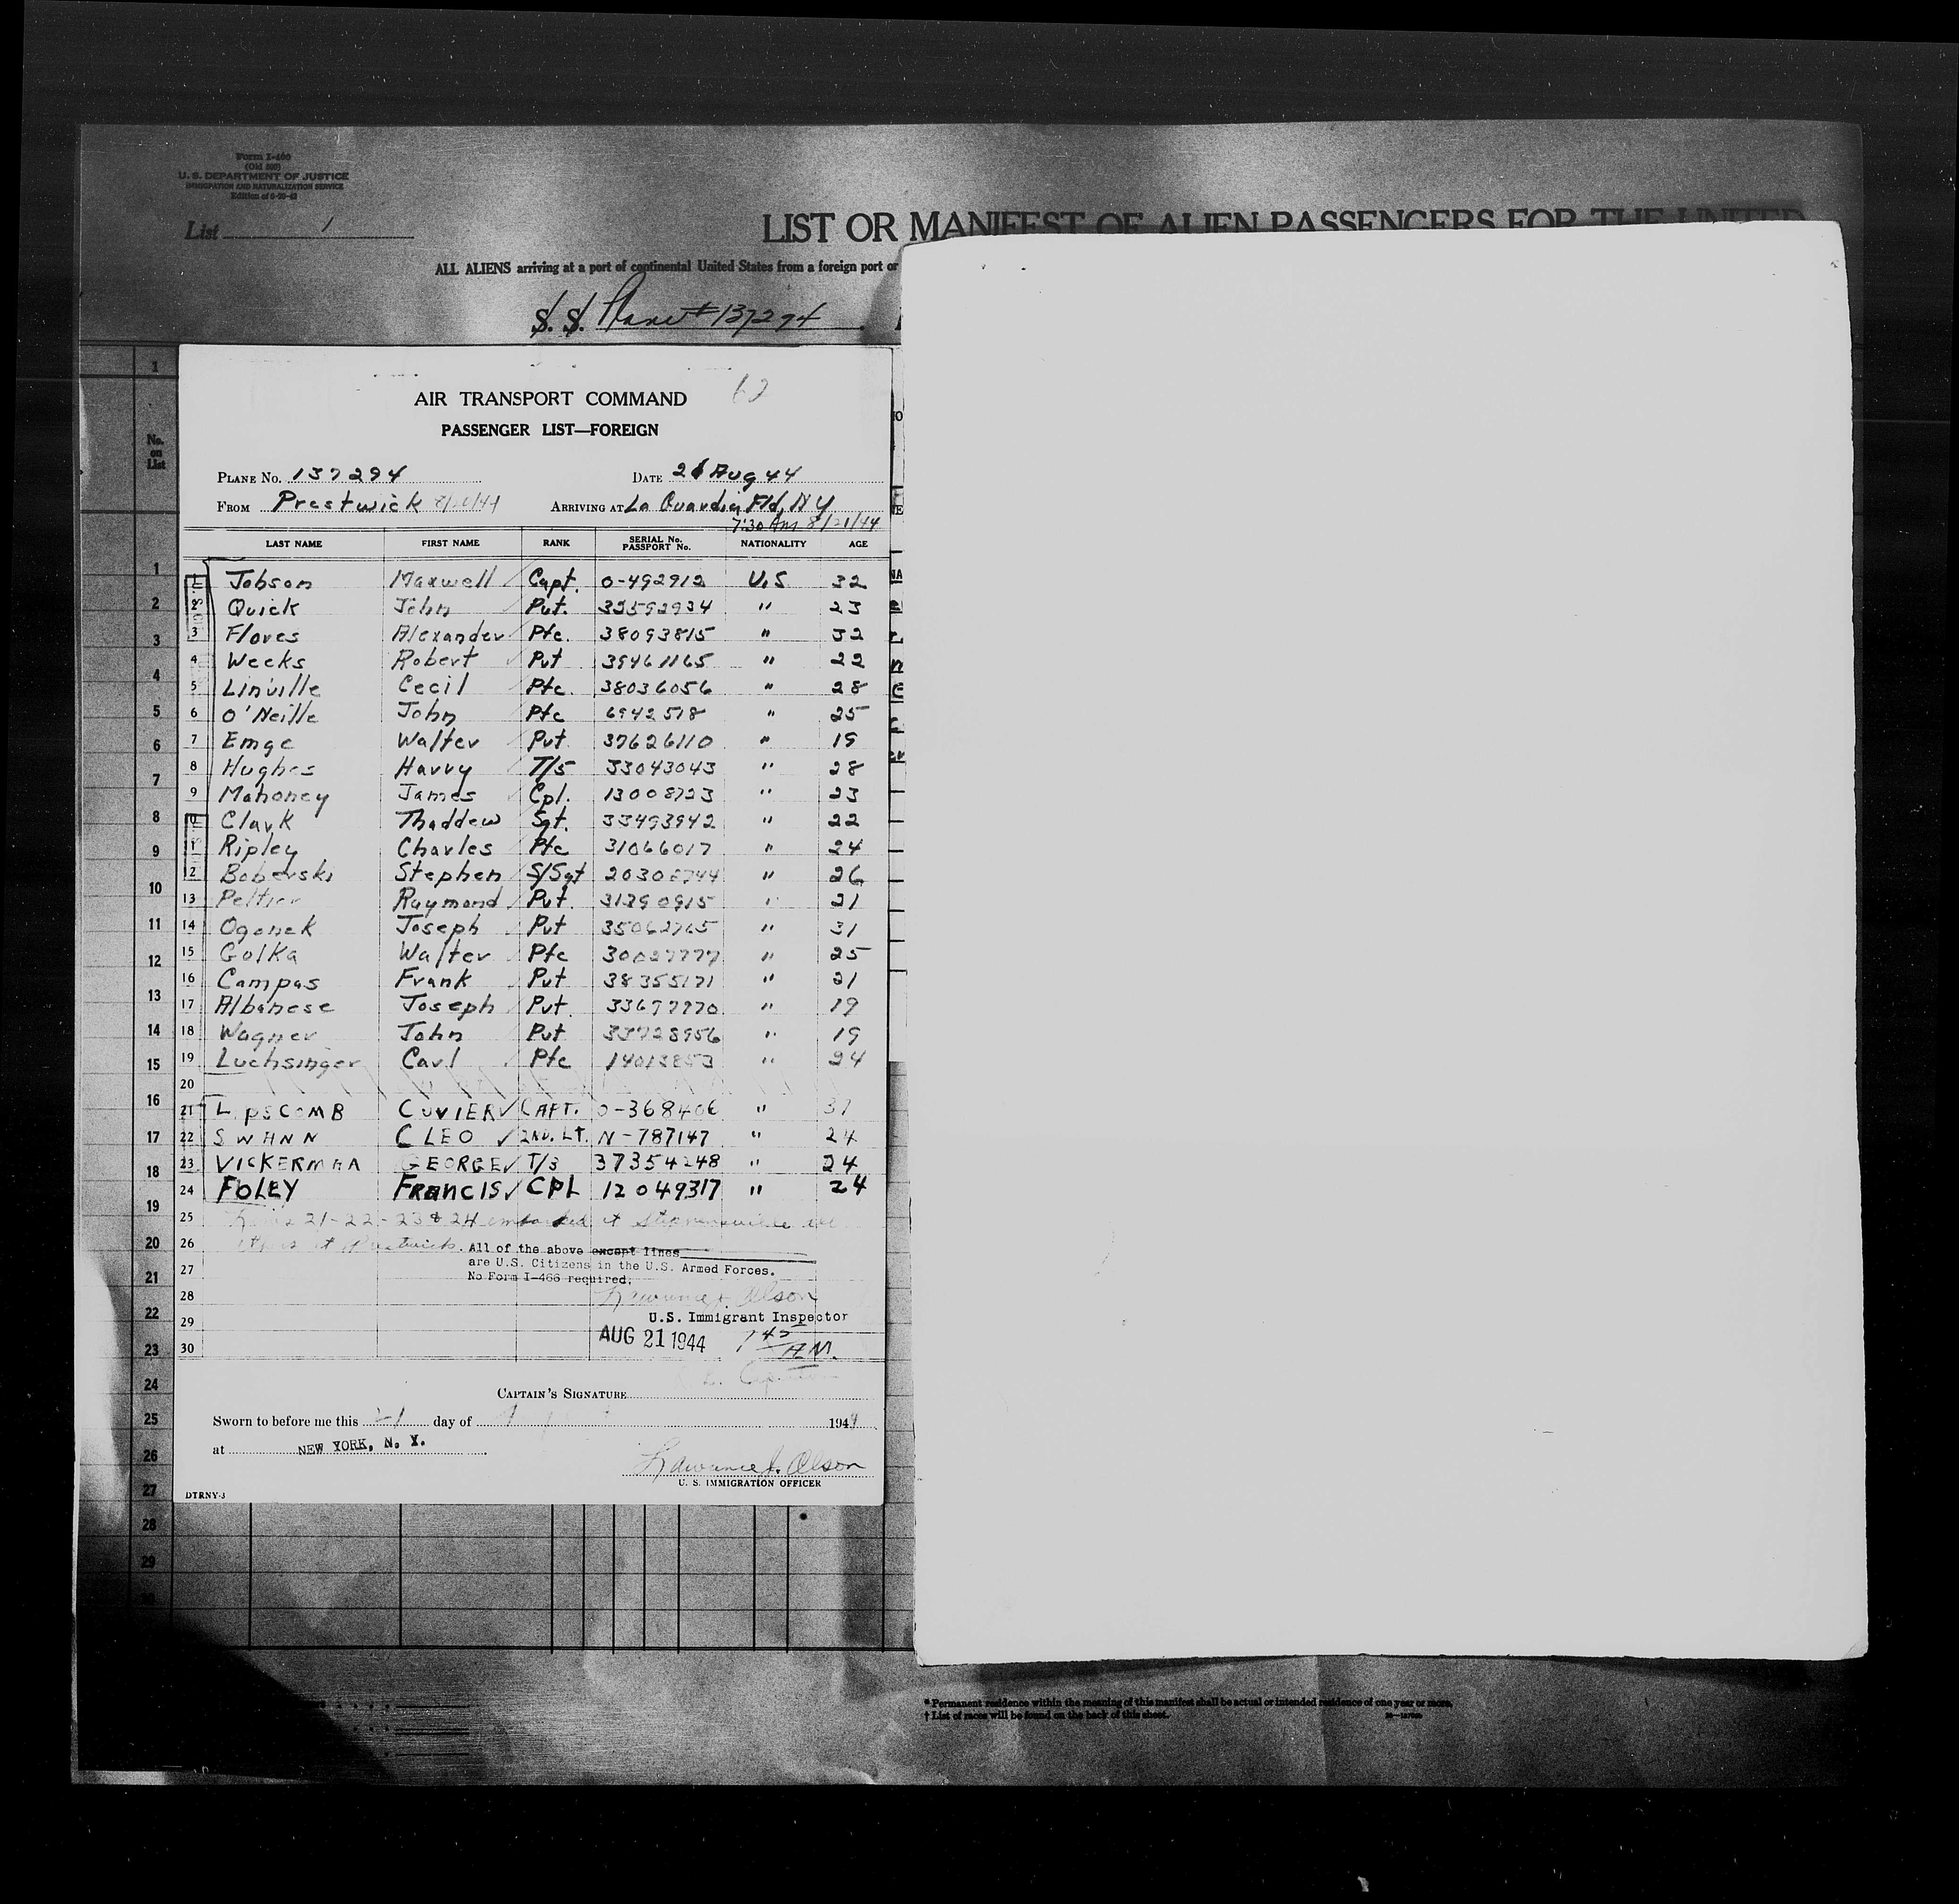 Form I-466
(Old 500)
U. S. DEPARTMENT OF JUSTICE
IMMIGRATION AND NATURALIZATION SERVICE
List 1
LIST OR MANIFEST OF ALIEN PASSENGERS FOR THE UNITED
ALL ALIENS arriving at a port of continental United States from a foreign port or
S. S. Plane # 137294
AIR TRANSPORT COMMAND
PASSENGER LIST—FOREIGN
PLANE No. 137294 DATE 21 Aug 44
FROM Prestwick ARRIVING AT La Guardia Fld, NY
7:30 Am 8/21/44
LAST NAME FIRST NAME RANK SERIAL No. PASSPORT No. NATIONALITY AGE
1 Jobson Maxwell Capt. O-492912 U.S. 32
2 Quick John Pvt. " 23
3 Flores Alexander Pfc. 38093815 " 32
4 Weeks Robert Pvt 39461165 " 22
5 Linville Cecil Pfc. 38036056 " 28
6 O'Neille John Pfc 6942518 " 25
7 Emge Walter Pvt. 37626110 " 19
8 Hughes Harry T/5 33043043 " 28
9 Mahoney James Cpl. 13008723 " 23
10 Clark Thaddew Sgt. 33493942 " 22
11 Ripley Charles Pfc 31066017 " 24
12 Boberski Stephen S/Sgt " 26
13 Peltier Raymond Pvt. 31390915 " 21
14 Ogonek Joseph Pvt 35062765 " 31
15 Golka Walter Pfc " 25
16 Campas Frank Pvt 38355171 " 21
17 Albanese Joseph Pvt. " 19
18 Wagner John Pvt 33728956 " 19
19 Luchsinger Carl Pfc " 24
20
21 LIPSCOMB CUVIER CAPT. O-368406 " 37
22 SWANN CLEO 2ND. LT. N-787147 " 24
23 VICKERMAN GEORGE T/3 37354248 " 24
24 FOLEY FRANCIS CPL 12049317 " 24
25 21-22-23 & 24 embarked at Stephensville all
26 others at Prestwick. All of the above except lines
27 are U.S. Citizens in the U.S. Armed Forces.
No Form I-466 required.
28 Lawrence J. Olson
29 U.S. Immigrant Inspector
30 AUG 21 1944 7 45 A.M.
CAPTAIN'S SIGNATURE
Sworn to before me this 21 day of August 1944
at NEW YORK, N. Y.
Lawrence J. Olson
U. S. IMMIGRATION OFFICER
DTRNY-3
No. on List
1
2
3
4
5
6
7
8
9
10
11
12
13
14
15
16
17
18
19
20
21
22
23
24
25
26
27
28
29
* Permanent residence within the meaning of this manifest shall be actual or intended residence of one year or more.
† List of races will be found on the back of this sheet.